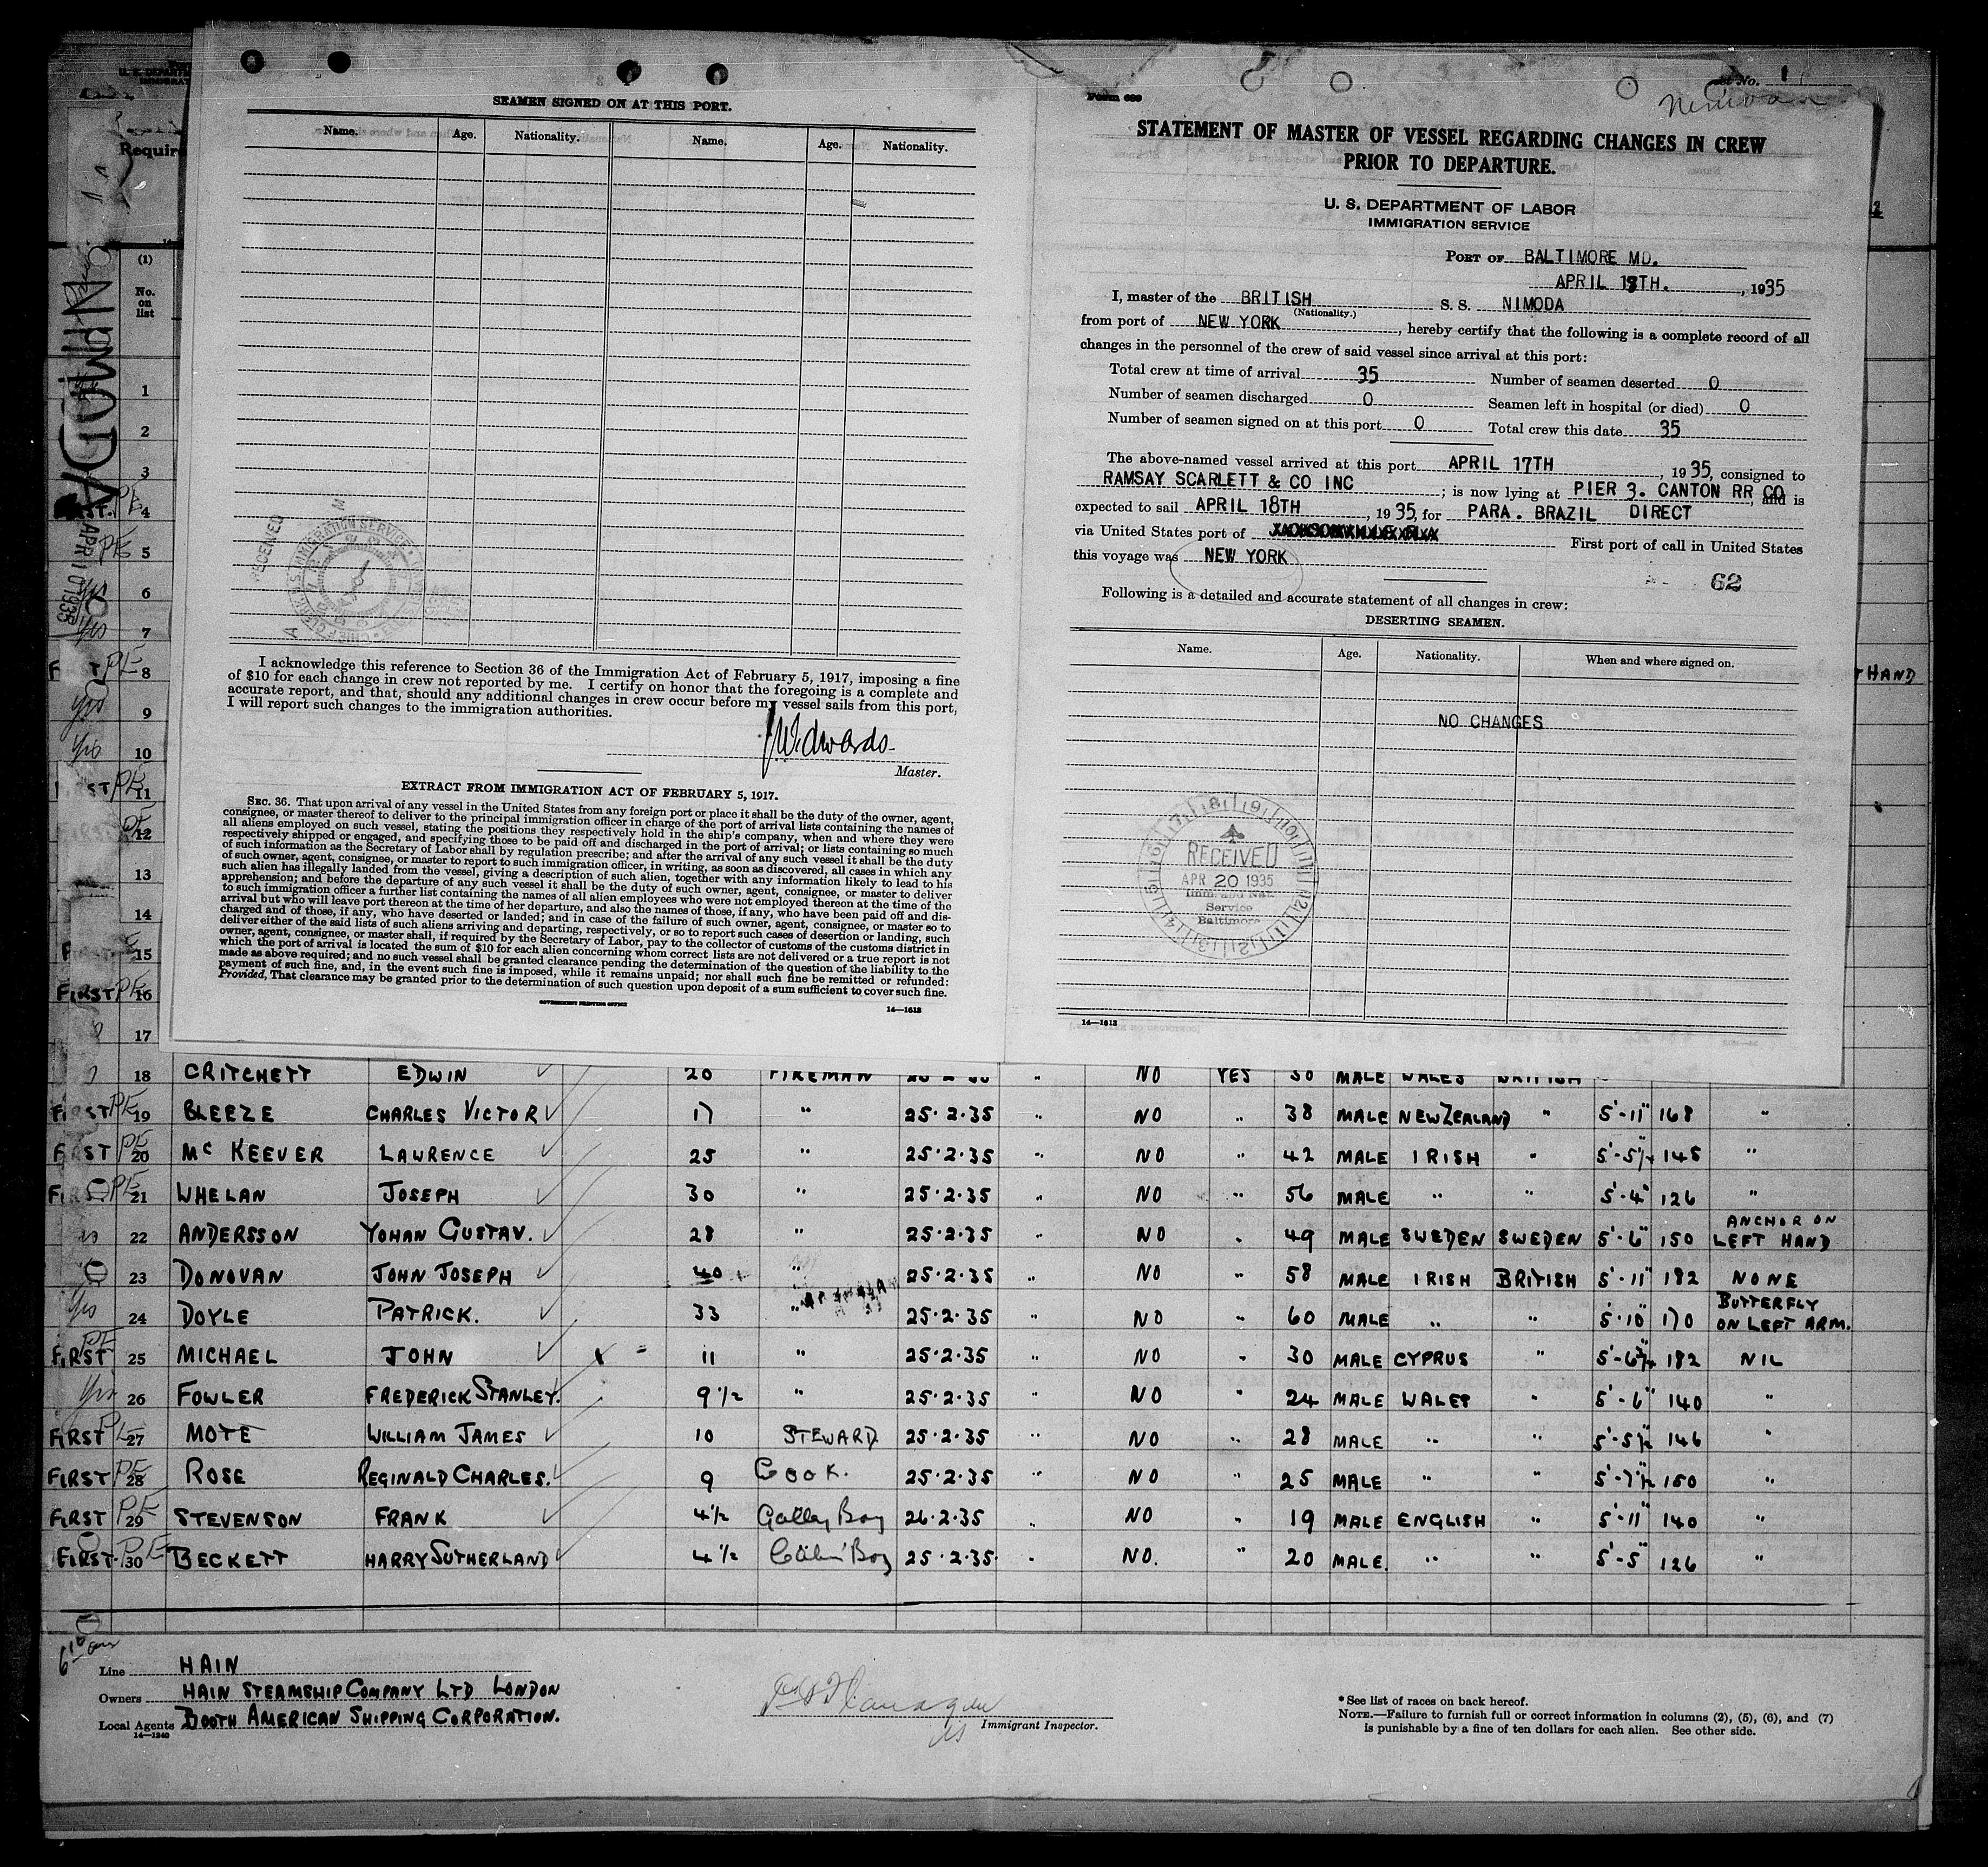 SEAMEN SIGNED ON AT THIS PORT.
Name. Age. Nationality. Name. Age. Nationality.
RECEIVED
I acknowledge this reference to Section 36 of the Immigration Act of February 5, 1917, imposing a fine
of $10 for each change in crew not reported by me. I certify on honor that the foregoing is a complete and
accurate report, and that, should any additional changes in crew occur before my vessel sails from this port,
I will report such changes to the immigration authorities.
J.W.Edwards
Master.
EXTRACT FROM IMMIGRATION ACT OF FEBRUARY 5, 1917.
SEC. 36. That upon arrival of any vessel in the United States from any foreign port or place it shall be the duty of the owner, agent,
consignee, or master thereof to deliver to the principal immigration officer in charge of the port of arrival lists containing the names of
all aliens employed on such vessel, stating the positions they respectively hold in the ship's company, when and where they were
respectively shipped or engaged, and specifying those to be paid off and discharged in the port of arrival; or lists containing so much
of such information as the Secretary of Labor shall by regulation prescribe; and after the arrival of any such vessel it shall be the duty
of such owner, agent, consignee, or master to report to such immigration officer, in writing, as soon as discovered, all cases in which any
such alien has illegally landed from the vessel, giving a description of such alien, together with any information likely to lead to his
apprehension; and before the departure of any such vessel it shall be the duty of such owner, agent, consignee, or master to deliver
to such immigration officer a further list containing the names of all alien employees who were not employed thereon at the time of the
arrival but who will leave port thereon at the time of her departure, and also the names of those, if any, who have been paid off and dis-
charged and of those, if any, who have deserted or landed; and in case of the failure of such owner, agent, consignee, or master so to
deliver either of the said lists of such aliens arriving and departing, respectively, or so to report such cases of desertion or landing, such
owner, agent, consignee, or master shall, if required by the Secretary of Labor, pay to the collector of customs of the customs district in
which the port of arrival is located the sum of $10 for each alien concerning whom correct lists are not delivered or a true report is not
made as above required; and no such vessel shall be granted clearance pending the determination of the question of the liability to the
payment of such fine, and, in the event such fine is imposed, while it remains unpaid; nor shall such fine be remitted or refunded:
Provided, That clearance may be granted prior to the determination of such question upon deposit of a sum sufficient to cover such fine.
GOVERNMENT PRINTING OFFICE
14—1613
No. 1
Form 689
STATEMENT OF MASTER OF VESSEL REGARDING CHANGES IN CREW
PRIOR TO DEPARTURE.
U. S. DEPARTMENT OF LABOR
IMMIGRATION SERVICE
PORT OF BALTIMORE MD.
APRIL 18TH. , 1935
I, master of the BRITISH S. S. NIMODA
(Nationality.)
from port of NEW YORK , hereby certify that the following is a complete record of all
changes in the personnel of the crew of said vessel since arrival at this port:
Total crew at time of arrival 35 Number of seamen deserted 0
Number of seamen discharged 0 Seamen left in hospital (or died) 0
Number of seamen signed on at this port 0 Total crew this date 35
The above-named vessel arrived at this port APRIL 17TH , 1935, consigned to
RAMSAY SCARLETT & CO INC ; is now lying at PIER 3. CANTON RR CO and is
expected to sail APRIL 18TH , 1935, for PARA. BRAZIL DIRECT
via United States port of First port of call in United States
this voyage was NEW YORK
62
Following is a detailed and accurate statement of all changes in crew:
DESERTING SEAMEN.
Name. Age. Nationality. When and where signed on.
NO CHANGES
RECEIVED
APR 20 1935
Service
Baltimore
14—1613
Require
(1)
No.
on
list
NIMODA
APR 10 1935
1
2
3
PE 4
PE 5
Yes 6
Yes 7
PE 8 HAND
Yes 9
Yes 10
PE 11
PE 12
13
14
15
FIRST PE 16
17
18 CRITCHETT EDWIN 20 FIREMAN " NO YES 30 MALE WALES BRITISH
FIRST PE 19 BLEEZE CHARLES VICTOR 17 " 25.2.35 " NO " 38 MALE NEW ZEALAND " 5'-11" 168 "
FIRST PE 20 Mc KEEVER LAWRENCE 25 " 25.2.35 " NO " 42 MALE IRISH " 5'-5½ 145 "
FIRST PE 21 WHELAN JOSEPH 30 " 25.2.35 " NO " 56 MALE " " 5'-4" 126 "
22 ANDERSSON YOHAN GUSTAV. 28 " 25.2.35 " NO " 49 MALE SWEDEN SWEDEN 5'-6" 150 ANCHOR ON LEFT HAND
23 DONOVAN JOHN JOSEPH 40 " 25.2.35 " NO " 58 MALE IRISH BRITISH 5'-11" 182 NONE
Yes 24 DOYLE PATRICK. 33 " 25.2.35 " NO " 60 MALE " " 5'-10" 170 BUTTERFLY ON LEFT ARM.
PE FIRST 25 MICHAEL JOHN 11 " 25.2.35 " NO " 30 MALE CYPRUS " 5'-6½ 182 NIL
Yes 26 FOWLER FREDERICK STANLEY. 9½ " 25.2.35 " NO " 24 MALE WALES " 5'-6" 140 "
FIRST PE 27 MOTE WILLIAM JAMES 10 STEWARD 25.2.35 " NO " 28 MALE " " 5'-5½ 146 "
FIRST PE 28 ROSE REGINALD CHARLES. 9 COOK. 25.2.35 " NO " 25 MALE " " 5'-7½ 150 "
FIRST PE 29 STEVENSON FRANK 4½ Galley Boy 26.2.35 " NO " 19 MALE ENGLISH " 5'-11" 140 "
FIRST PE 30 BECKETT HARRY SUTHERLAND 4½ Cabin Boy 25.2.35 " NO. " 20 MALE. " " 5'-5" 126 "
Line HAIN
Owners HAIN STEAMSHIP COMPANY LTD LONDON
Local Agents BOOTH AMERICAN SHIPPING CORPORATION.
14—1240
Immigrant Inspector.
* See list of races on back hereof.
NOTE.—Failure to furnish full or correct information in columns (2), (5), (6), and (7)
is punishable by a fine of ten dollars for each alien. See other side.